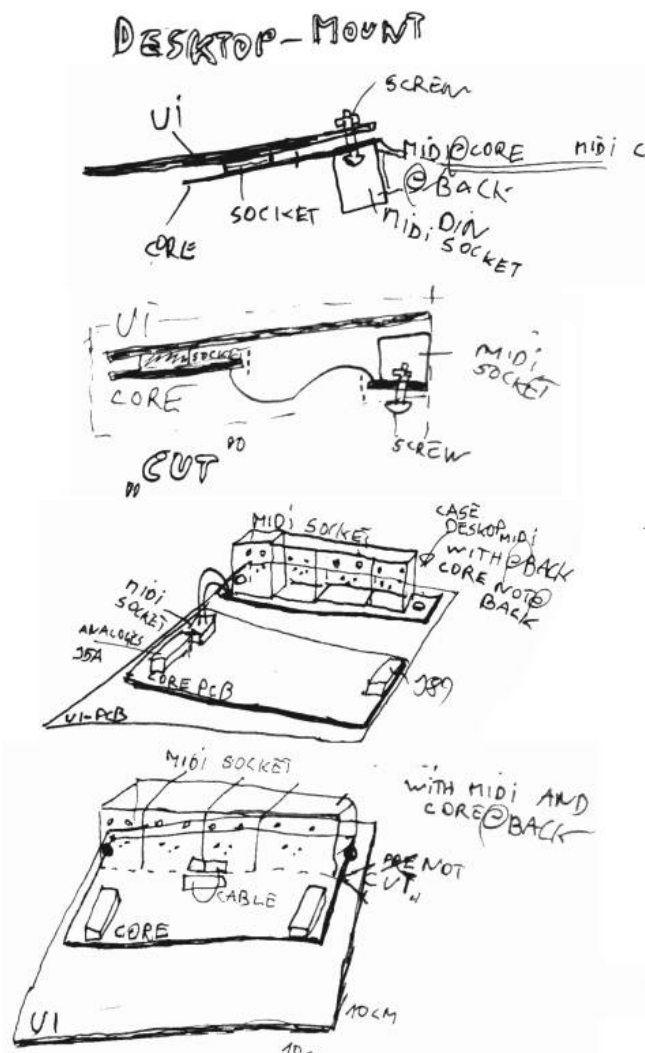 DESKTOP-MOUNT
SCREW
UI
MIDI@CORE MIDI C
@ BACK
SOCKET
MIDI DIN
SOCKET
CORE
UI
SOCKET
MIDI
SOCKET
CORE
SCREW
"CUT"
MIDI SOCKET
CASE
DESKOP MIDI
WITH @BACK
CORE NOT@
BACK
MIDI
SOCKET
ANALOGES
J5A
CORE PCB
J89
UI-PCB
MIDI SOCKET
WITH MIDI AND
CORE@BACK
NOT
CUT"
CABLE
CORE
UI
10CM